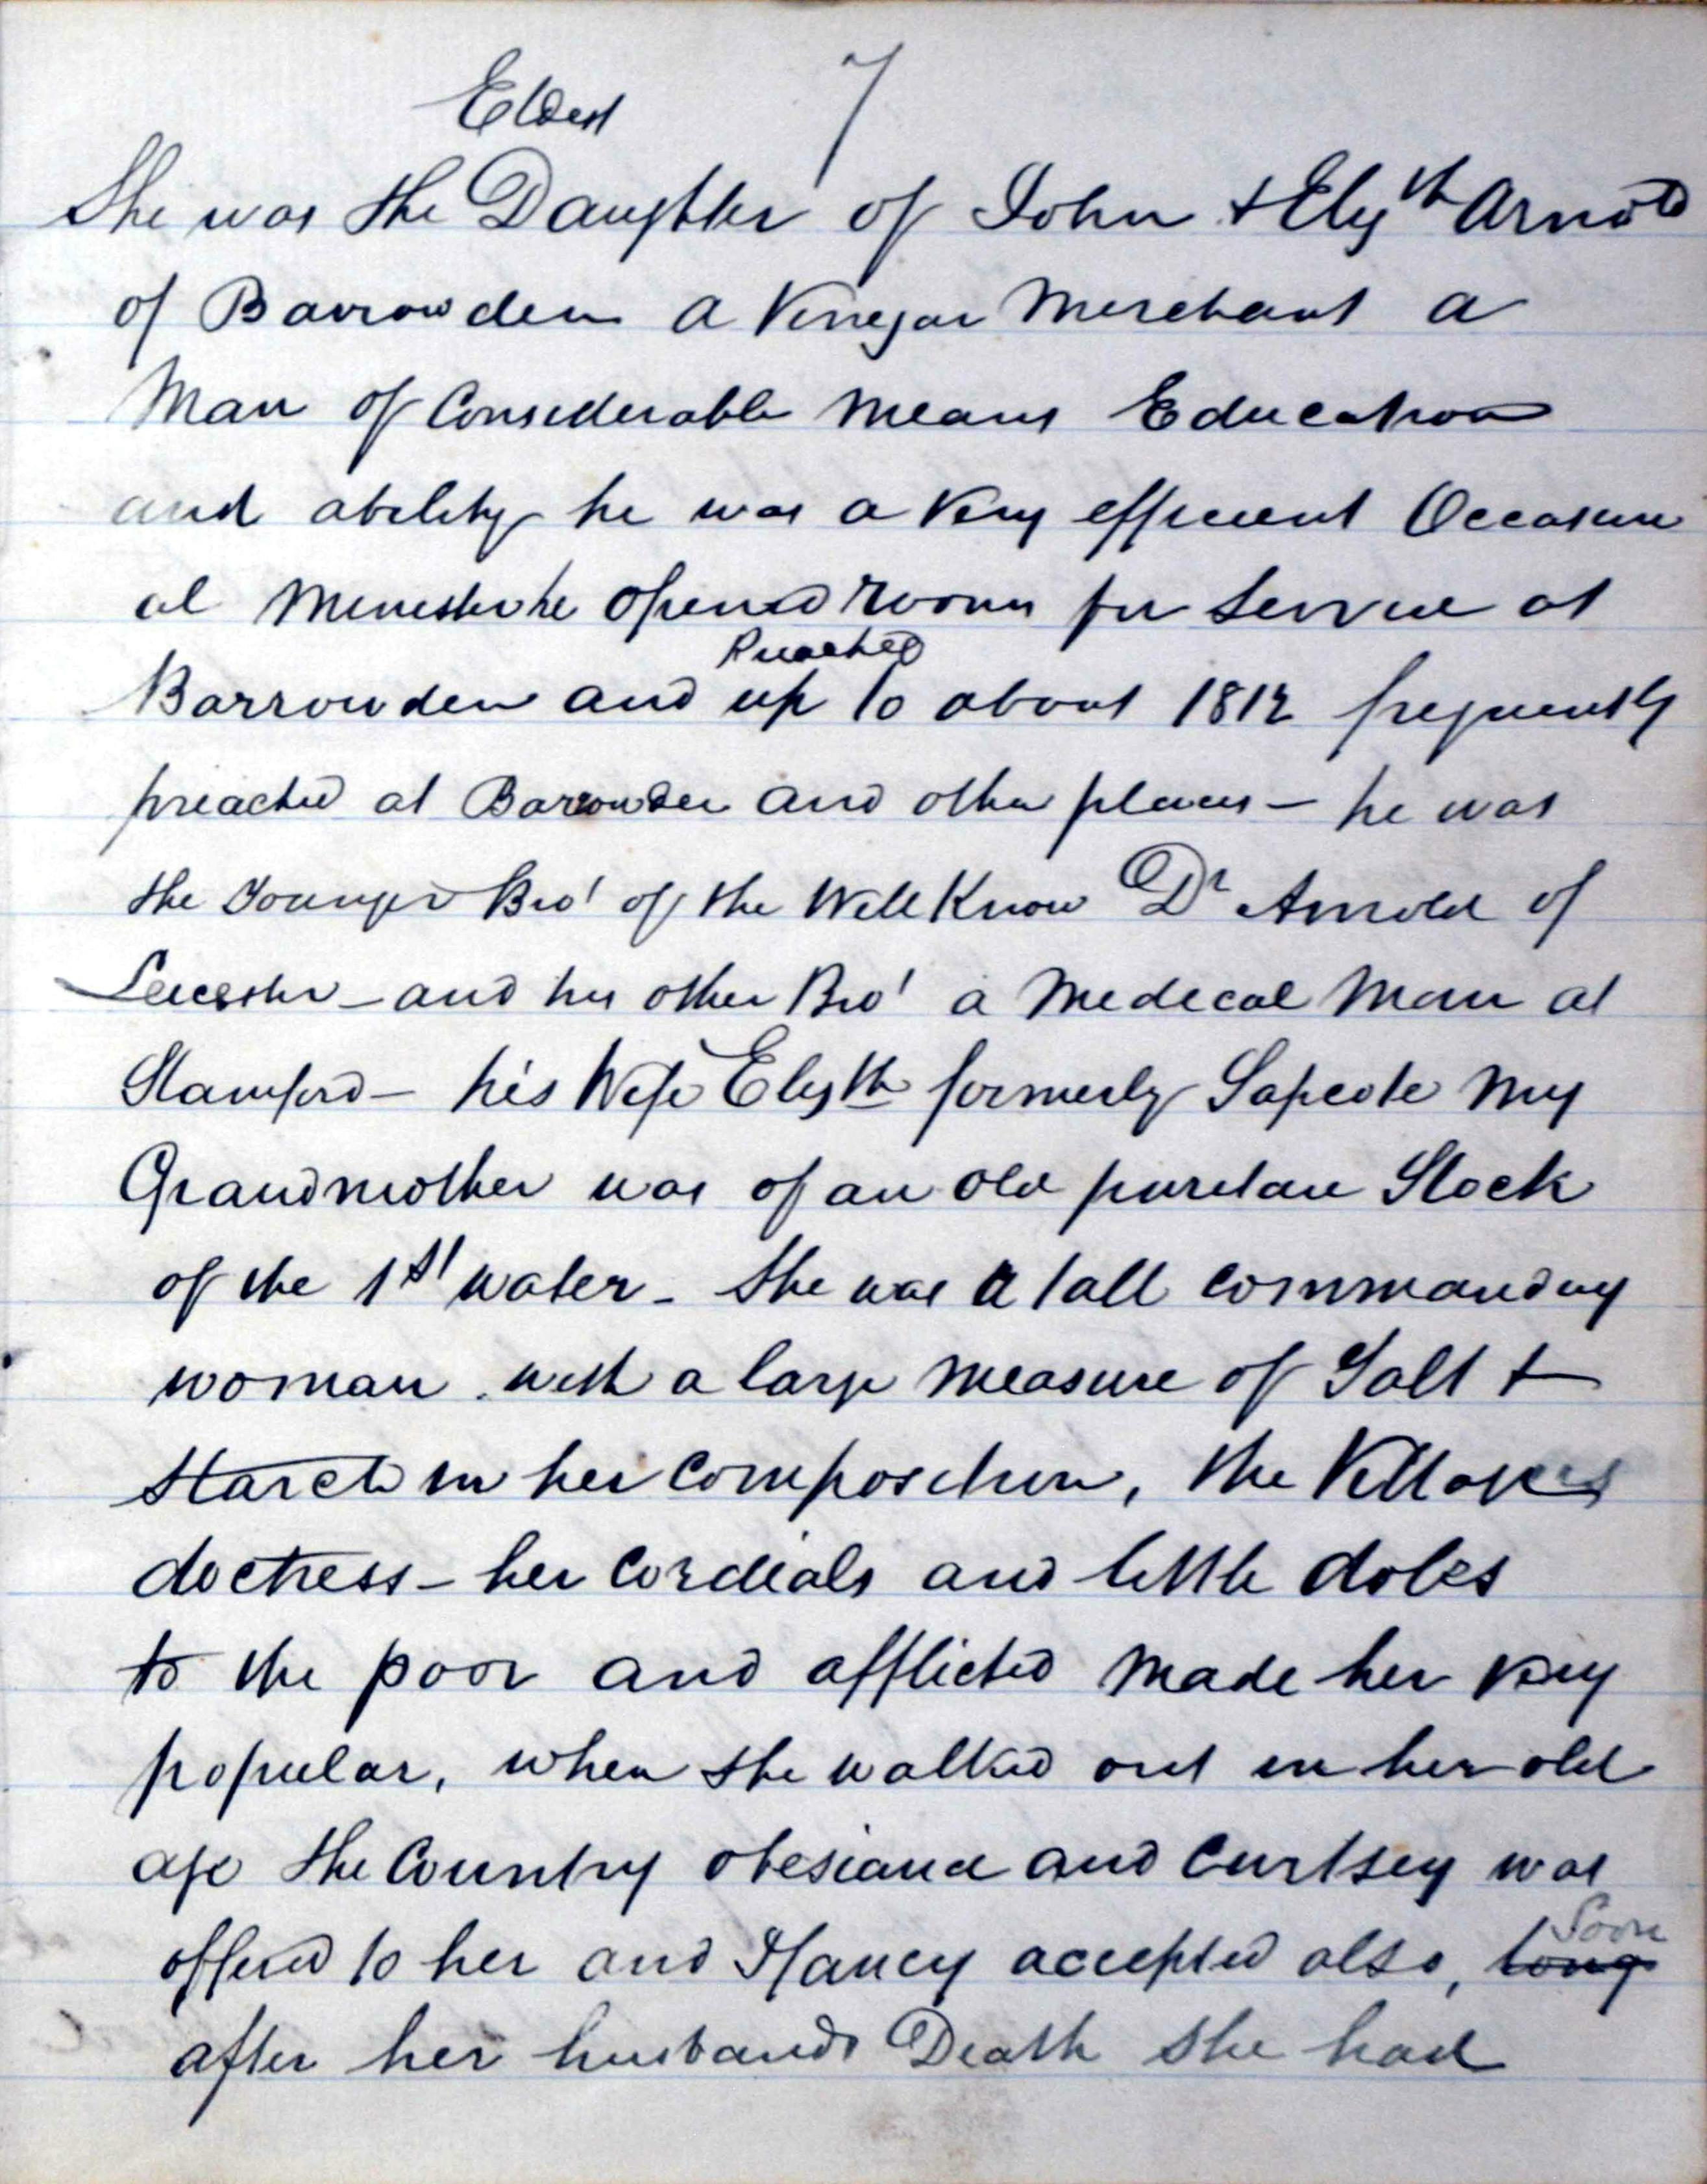 7
Eldest
She was the Daughter of John & Elizth Arnold
of Barrowden a Vinegar Merchant a
Man of Considerable Means Education
and ability he was a Very efficient Occasion
al Minister he opened rooms for Service at
Preached
Barrowden and up to about 1812 frequently
preached at Barrowden and other places - he was
the Younger Bro' of the Well Know Dr Arnold of
Leicester - and his other Bro' a Medical Man at
Stamford - his Wife Elizth formerly Sapcote My
Grandmother was of an old puritan Stock
of the 1st water - She was a tall commanding
woman with a large measure of Salt &
Starch in her Composition, the Village
doctress - her Cordials and little doles
to the poor and afflicted Made her very
popular, when she walked out in her old
age the Country obesiance and Curtsey was
Soon
offered to her and I fancy accepted also, long
after her husbands Death she had